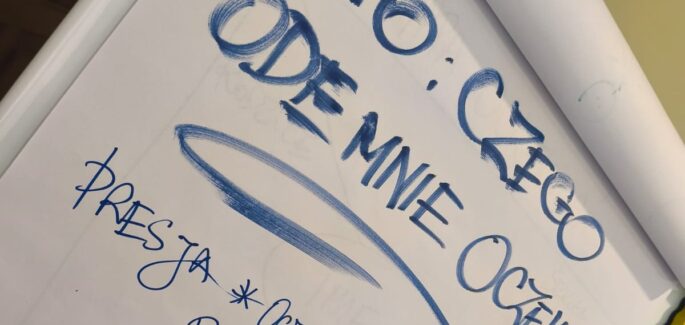 O: CZEGO
ODE MNIE OCZE
PRESJA *